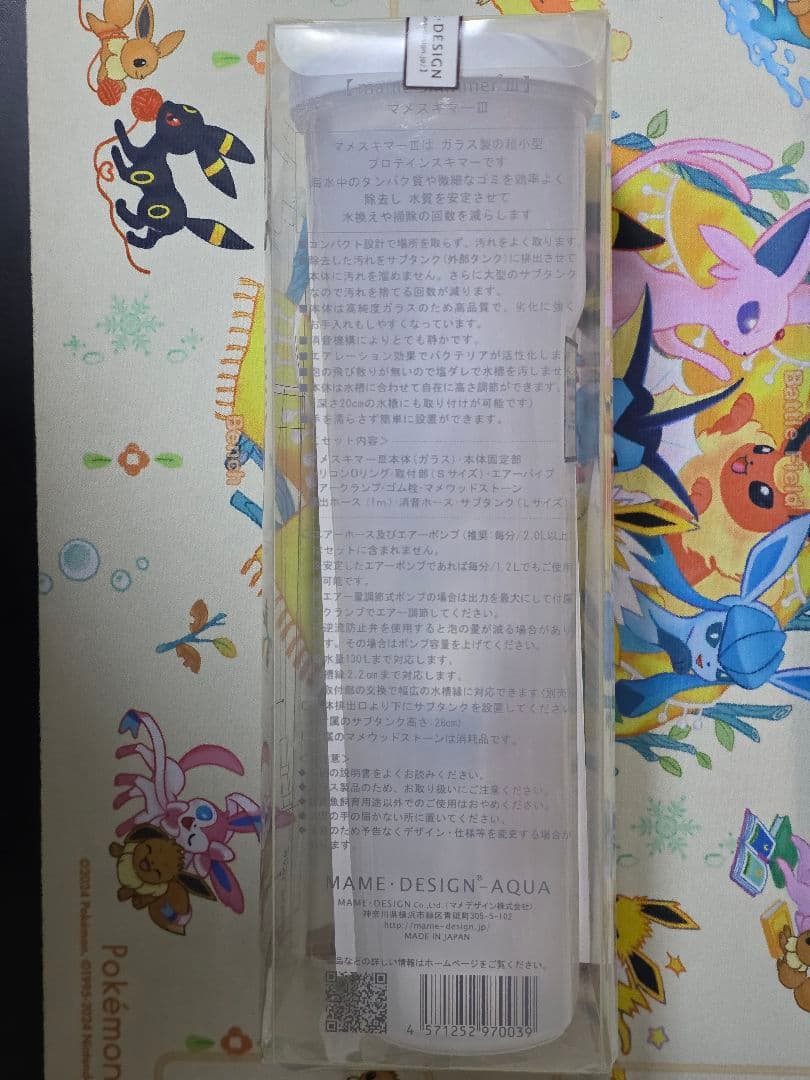 DESIGN
マメスキマーⅢ
マメスキマーⅢは ガラス製の超小型
プロテインスキマーです
海水中のタンパク質や微細なゴミを効率よく
除去し 水質を安定させて
水換えや掃除の回数を減らします
■コンパクト設計で場所を取らず、汚れをよく取ります。
除去した汚れをサブタンク(外部タンク)に排出させて
本体に汚れを溜めません。さらに大型のサブタンク
なので汚れを捨てる回数が減ります。
■本体は高純度ガラスのため高品質で、劣化に強く
お手入れもしやすくなっています。
■消音機構によりとても静かです。
■エアレーション効果でバクテリアが活性化します
泡の飛び散りが無いので塩ダレで水槽を汚しません
■本体は水槽に合わせて自在に高さ調節ができます。
(深さ20cmの水槽にも取り付けが可能です)
手を濡らさず簡単に設置ができます。
セット内容>
メスキマーⅢ本体(ガラス)・本体固定部
リコンOリング・取付部(Sサイズ)・エアーパイプ
アークランプ・ゴム栓・マメウッドストーン
出ホース(1m)・消音ホース・サブタンク(Lサイズ)
エアーホース及びエアーポンプ(推奨:毎分/2.0L以上
セットに含まれません。
安定したエアーポンプであれば毎分/1.2Lでもご使用
可能です。
エアー量調節式ポンプの場合は出力を最大にして付属
クランプでエアー調節してください。
逆流防止弁を使用すると泡の量が減る場合があり
す。その場合はポンプ容量を上げてください。
水量130Lまで対応します。
槽縁2.2cmまで対応します。
取付部の交換で幅広の水槽縁に対応できます(別売
体排出口より下にサブタンクを設置してください
属のサブタンク高さ:26cm)
属のマメウッドストーンは消耗品です。
意>
の説明書をよくお読みください。
ス製品のため、お取り扱いにご注意ください。
魚飼育用途以外でのご使用はおやめください。
の手の届かない所に置いてください。
のため予告なくデザイン・仕様等を変更する場合が
ます。
MAME・DESIGN®-AQUA
MAME・DESIGN Co.,Ltd.(マメデザイン株式会社)
神奈川県横浜市緑区青砥町305-5-102
http://mame-design.jp/
MADE IN JAPAN
品などの詳しい情報はホームページをご覧ください。
4 571252 970039
Bench
Battle Field
©2024 Pokémon. ©1995-2024 Ninten
Pokémon